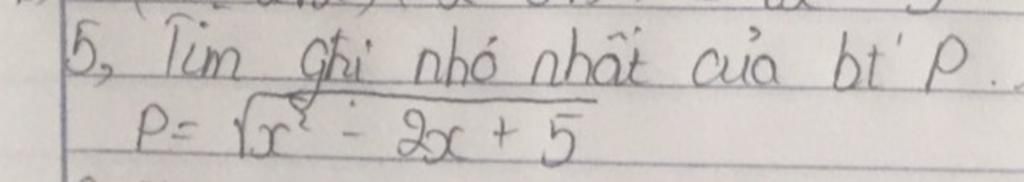 5, Tìm ghi nhỏ nhất của bt P.
P = √x² - 2x + 5